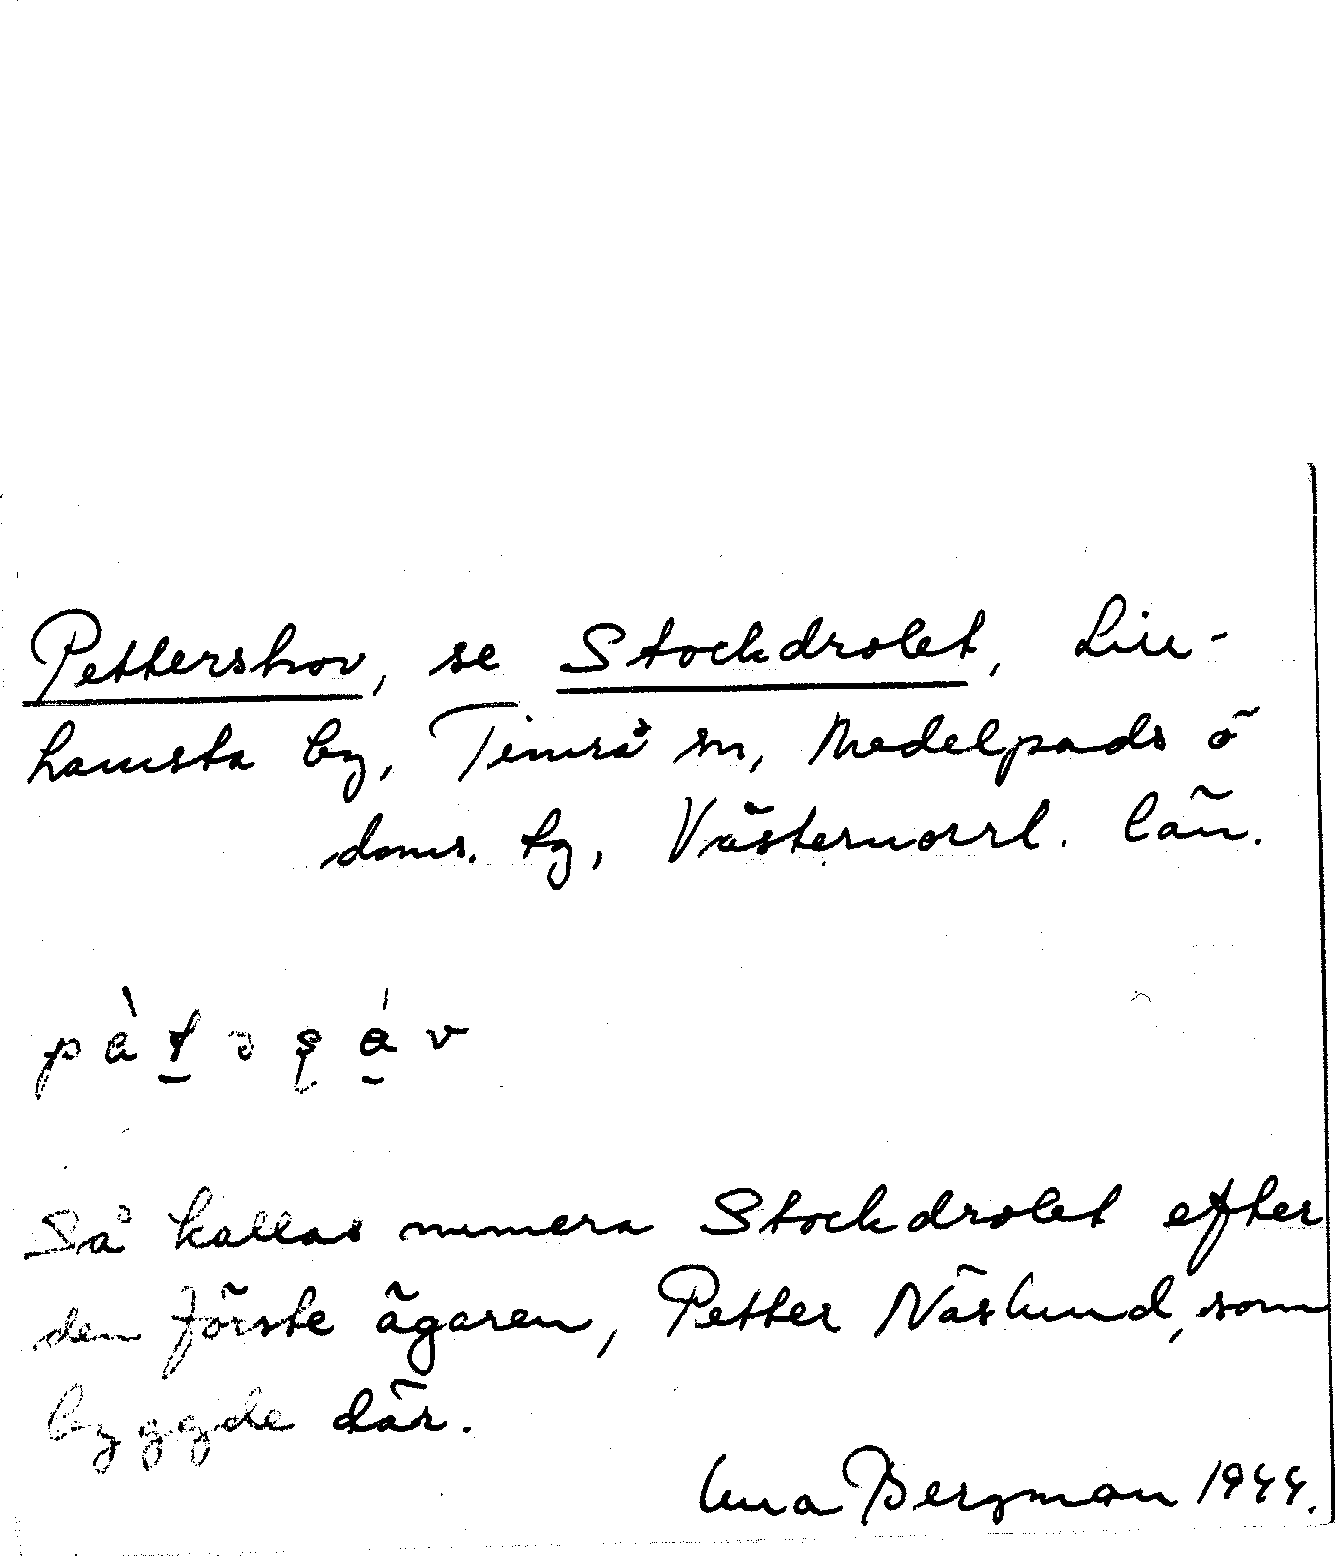 Pettershov, se Stockdrolet, Lin-
hamsta by, Timrå sn, Medelpads ö
doms. tg, Västernorrl. län.
Så kallas numera Stockdrolet efter
den förste ägaren, Petter Näslund, som
byggde där.
Bergman 1944.